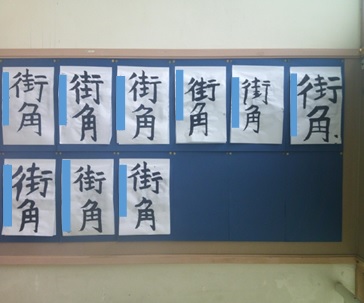 街角
街角
街角
街角
街角
街角
街角
街角
街角